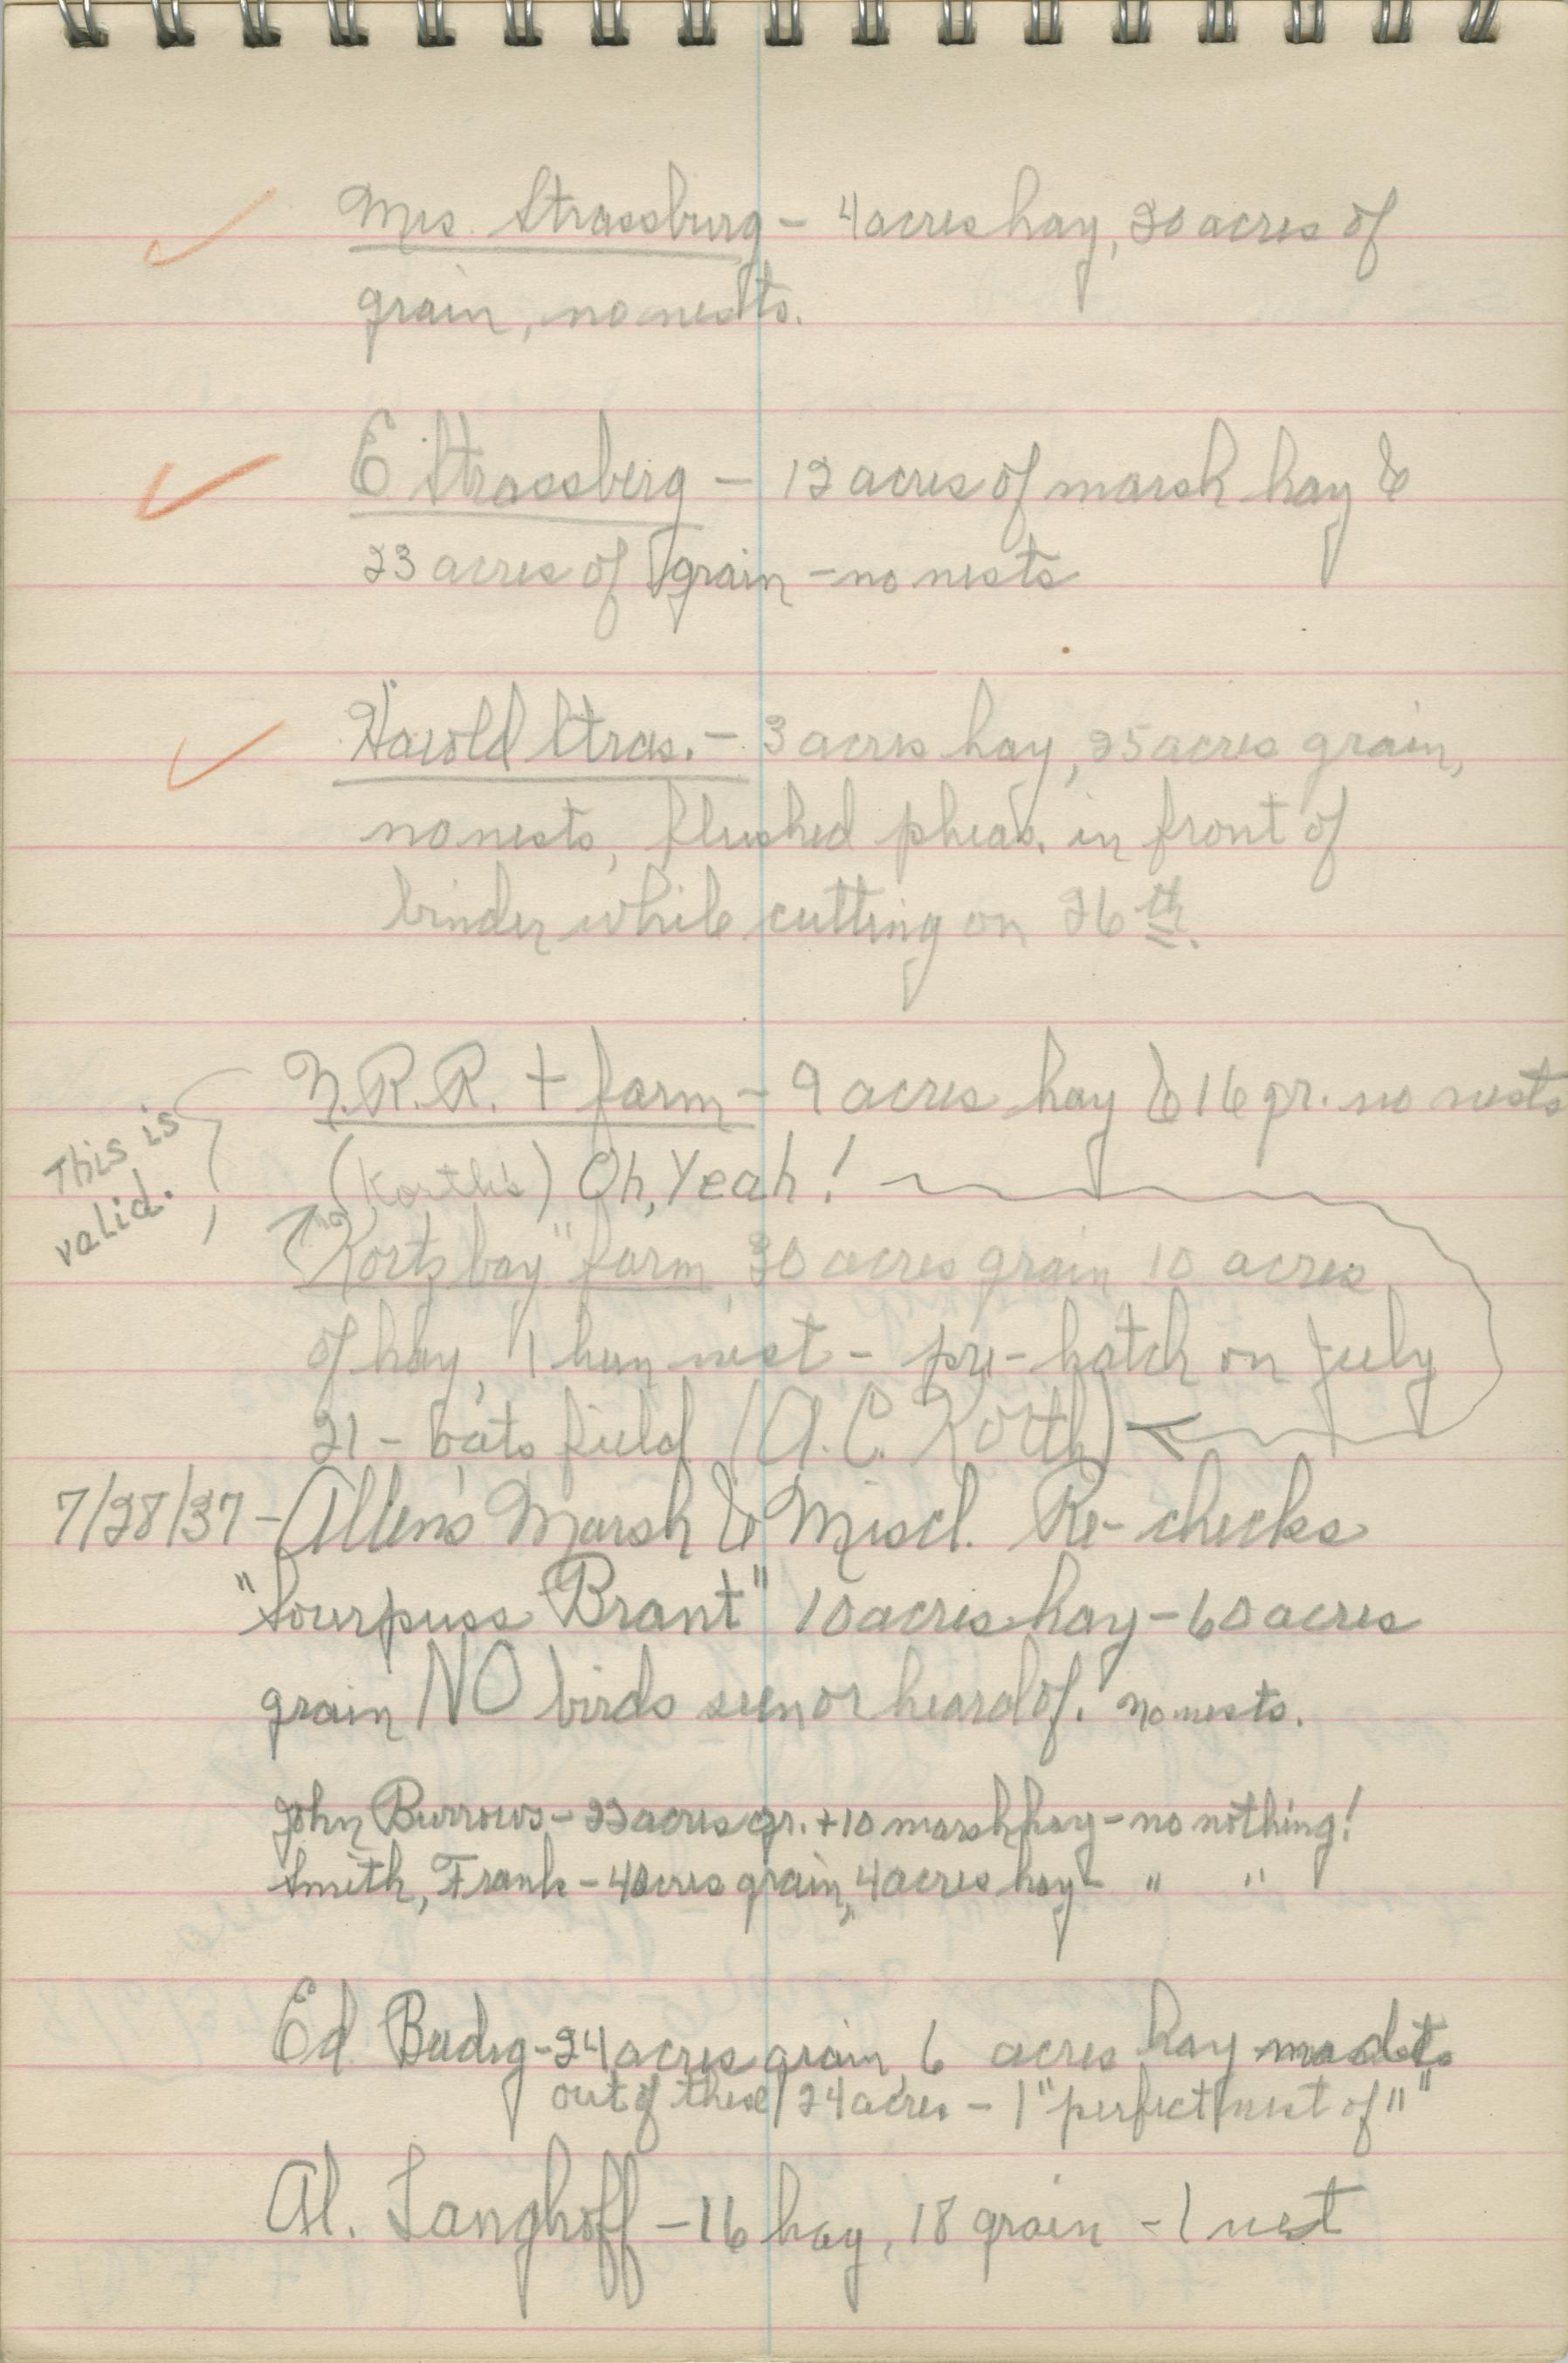 Mrs. Strassburg – 4 acres hay, 20 acres of
grain, no nests.
E Strassberg – 12 acres of marsh hay &
23 acres of grain – no nests
Harold Stras. – 3 acres hay, 25 acres grain,
no nests, flushed pheas. in front of
binder while cutting on 26th.
This is
valid.
R.R. + farm – 9 acres hay & 16 gr. no nests
(Korth's) Oh, Yeah!
farm 30 acres grain 10 acres
of hay, 1 hun nest – pre-hatch on July
21 – oats field (A.C. Korth)
7/28/37 – Allen's Marsh & Miscl. Re-checks
"Sourpuss Brant" 10 acres hay – 60 acres
grain NO birds seen or heard of. No nests.
John Burrows – 22 acres gr. + 10 marsh hay – no nothing!
Smith, Frank – 40 acres grain, 4 acres hay – " "
Ed – 24 acres grain, 6 acres hay
out of these 24 acres – 1 "perfect nest of 11"
Al. Langhoff – 16 hay, 18 grain – 1 nest